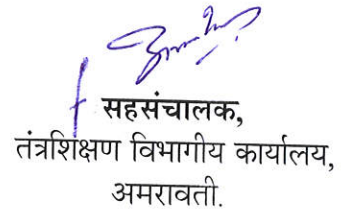 सहसंचालक,
तंत्रशिक्षण विभागीय कार्यालय,
अमरावती.